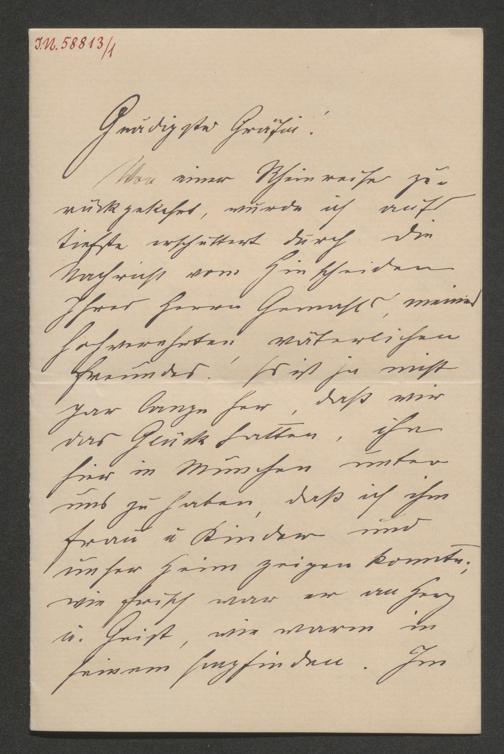 I.N. 58813/1
Gnädigste Gräfin!
Von einer Rheinreise zu-
rückgekehrt, wurde ich auf's
tiefste erschüttert durch die
Nachricht vom Hinscheiden
Ihres Herrn Gemahls, meines
hochverehrten väterlichen
Freundes. Es ist ja nicht
gar lange her, daß wir
das Glück hatten, ihn
hier in München unter
uns zu haben, daß ich ihm
Frau u Kinder und
unser Heim zeigen konnte;
wie frisch war er an Herz
u. Geist, wie warm in
seinem Empfinden. Im